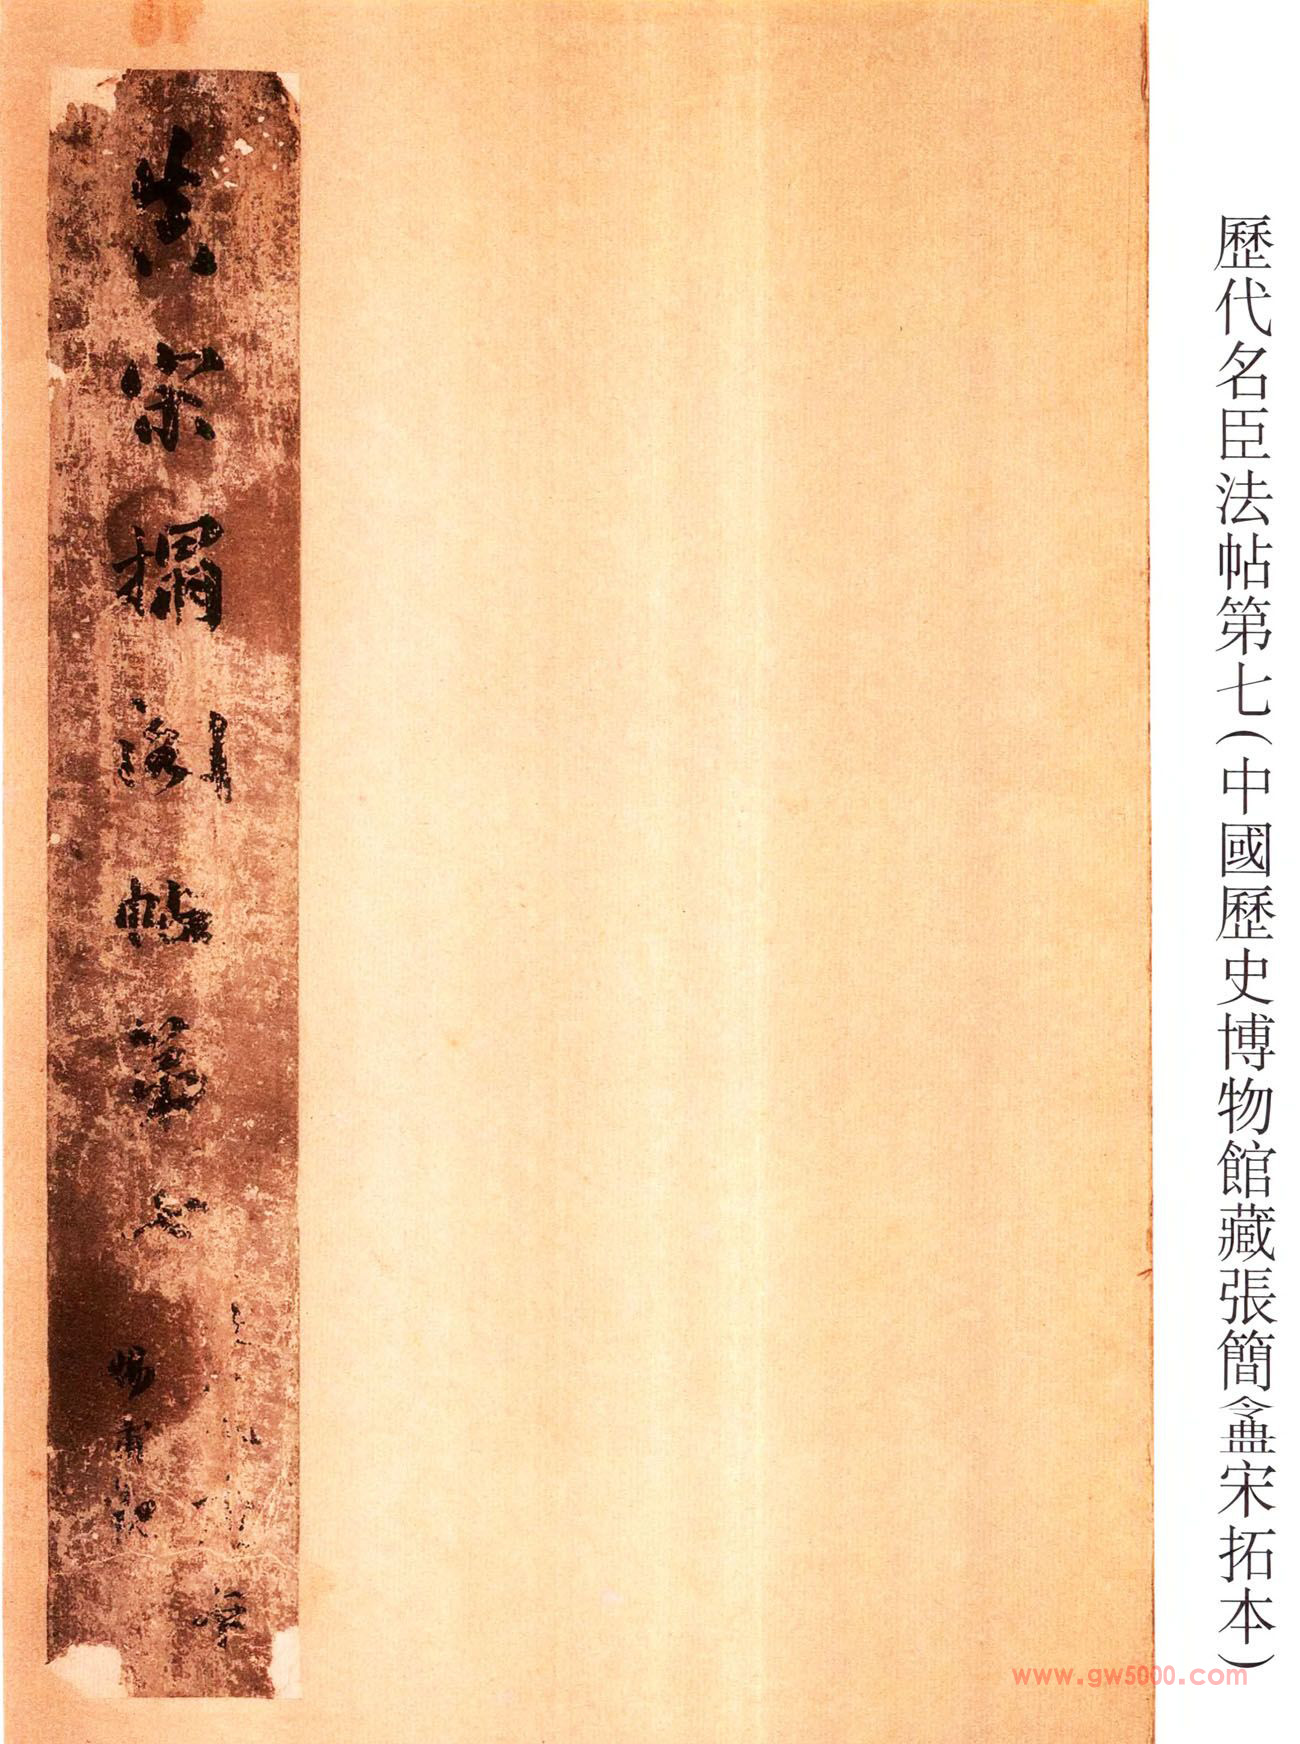 歷代名臣法帖第七(中國歷史博物館藏張簡盦宋拓本)
真宋搨閣帖第七
www.gw5000.com